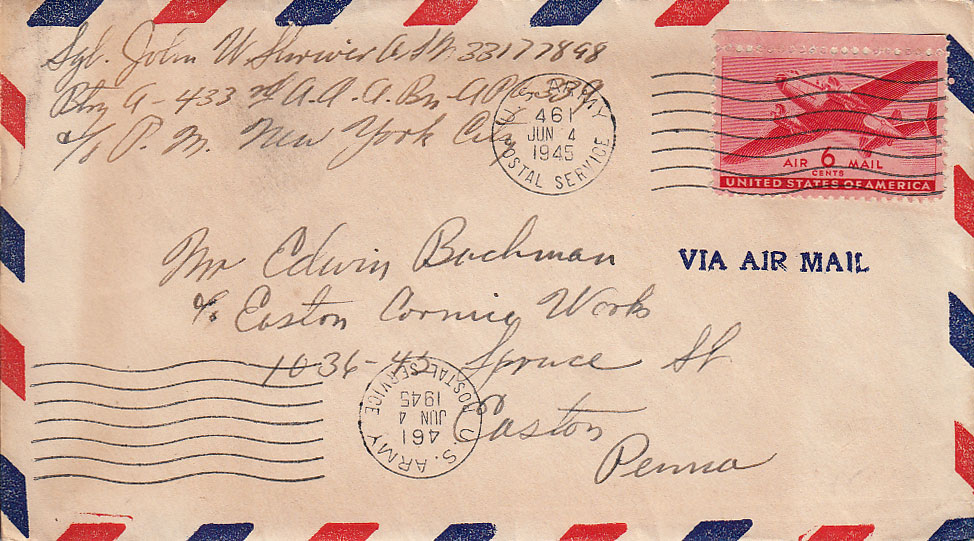 Sgt. John W. Shriver A.S.N. 33177898
Btry A - 433 rd A.A.A. Bn - APO
c/o P.M. New York City
U.S. ARMY
461
JUN 4
1945
POSTAL SERVICE
AIR 6 MAIL
CENTS
UNITED STATES OF AMERICA
VIA AIR MAIL
Mr Edwin Bachman
c/o Easton Cornice Works
1036-42 Spruce St
Easton
Penna
U.S. ARMY
461
JUN 4
1945
POSTAL SERVICE